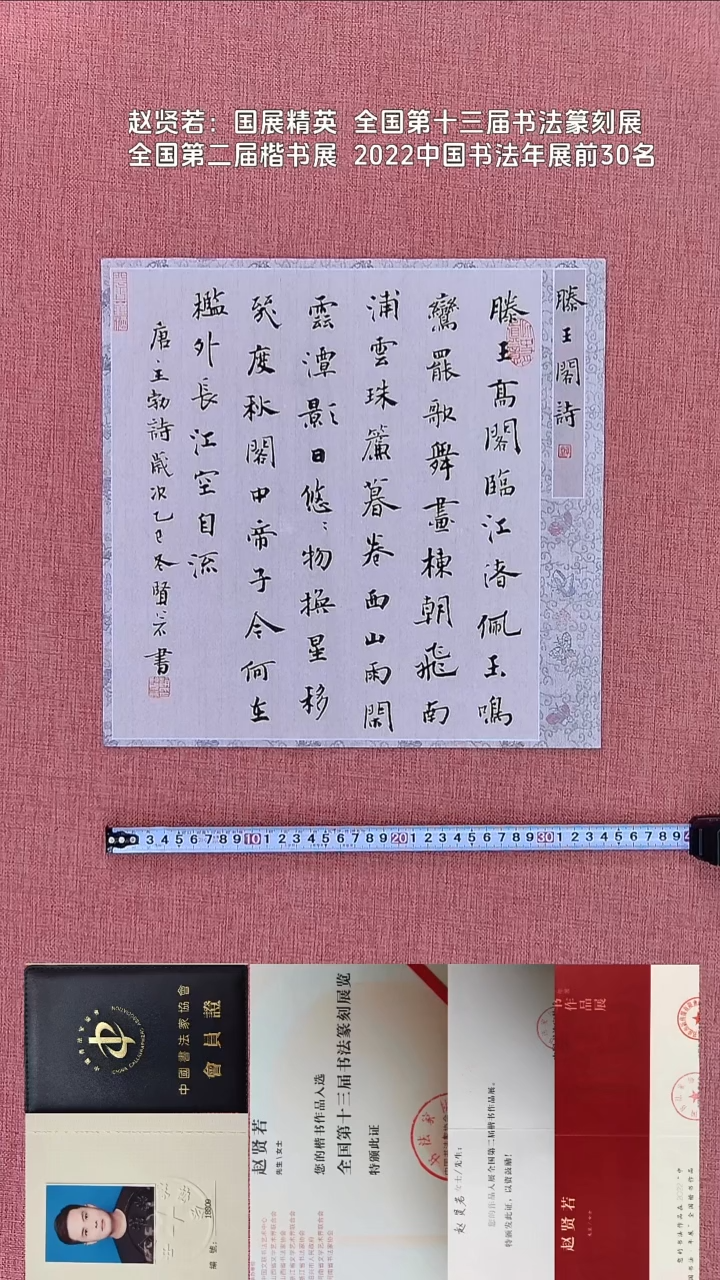 赵贤若：国展精英 全国第十三届书法篆刻展
全国第二届楷书展 2022中国书法年展前30名
滕王閣詩
滕王髙閣臨江渚佩玉鳴
鸞罷歌舞畫棟朝飛南
浦雲珠簾暮卷西山雨閑
雲潭影日悠〻物換星移
㡬度秋閣中帝子今何在
檻外長江空自流
唐·王勃詩歲次乙巳冬賢若書
3 4 5 6 7 8 9 10 1 2 3 4 5 6 7 8 9 20 1 2 3 4 5 6 7 8 9 30 1 2 3 4 5 6 7 8 9
中國書法家協會
會員證
CHINA CALLIGRAPHERS ASSOCIATION
編號：
赵贤若
先生\女士
您的楷书作品入选
全国第十三届书法篆刻展览
特颁此证
赵贤若女士/先生：
您的作品入展全国第二届楷书作品展。
特颁发此证，以资鼓励！
作品展
赵贤若
您的书法作品